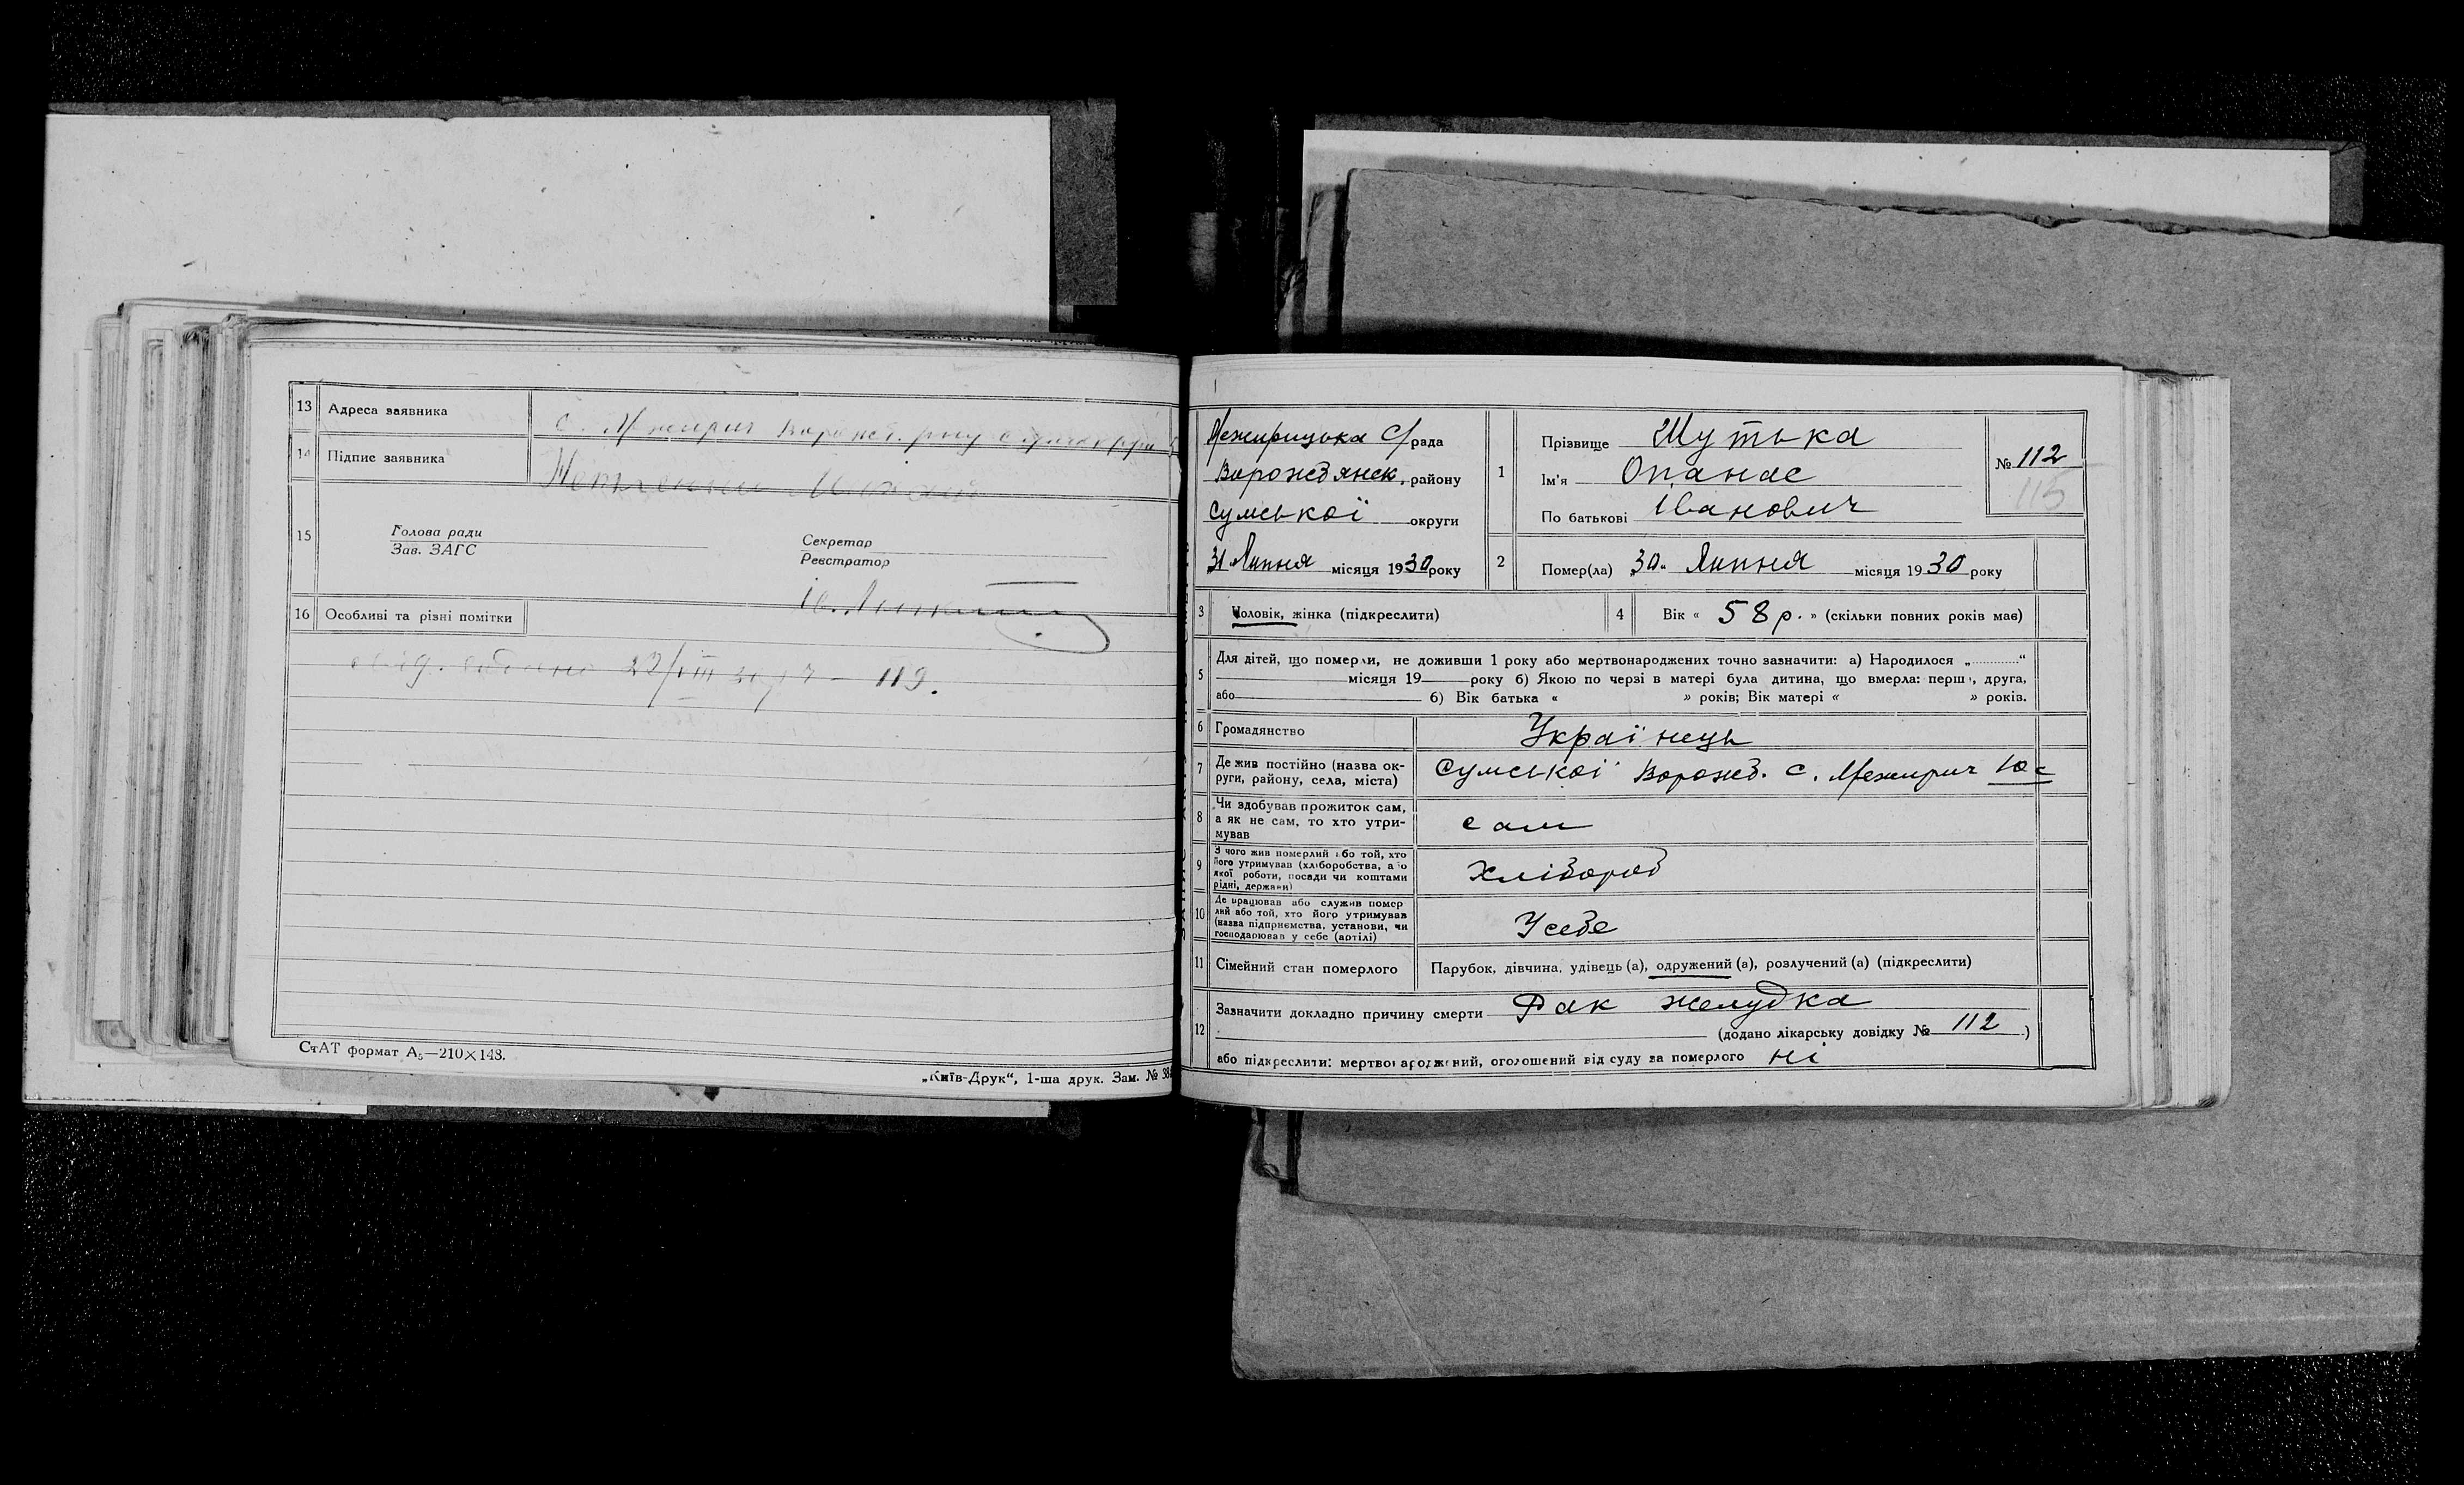 13 Адреса заявника с. Межирич
14 Підпис заявника
15 Голова ради
Зав. ЗАГС
Секретар
Реєстратор
16 Особливі та різні помітки
119.
СтАТ формат А₅—210×148.
„Київ-Друк“, 1-ша друк. Зам. №
Межирицька С/рада
Ворождянск. району
Сумської округи
31 Липня місяця 1930 року
1 Прізвище Шутька
Ім'я Опанас
По батькові Іванович
№ 112
115
2 Помер(ла) „30“ Липня місяця 1930 року
3 Чоловік, жінка (підкреслити)
4 Вік « 58 р. » (скільки повних років має)
5 Для дітей, що померли, не доживши 1 року або мертвонароджених точно зазначити: а) Народилося „............“
місяця 19 року б) Якою по черзі в матері була дитина, що вмерла: перша, друга,
або б) Вік батька « » років; Вік матері « » років.
6 Громадянство Українець
7 Де жив постійно (назва ок-
руги, району, села, міста) Сумської Ворожб. с. Межирич
8 Чи здобував прожиток сам,
а як не сам, то хто утри-
мував сам
9 З чого жив померлий або той, хто
його утримував (хліборобства, або
якої роботи, посади чи коштами
рідні, держави) Хлібороб
10 Де працював або служив помер
лий або той, хто його утримував
(назва підприємства, установи, чи
господарював у себе (артілі) У себе
11 Сімейний стан померлого Парубок, дівчина, удівець (а), одружений (а), розлучений (а) (підкреслити)
12 Зазначити докладно причину смерти Рак желудка
(додано лікарську довідку № 112 )
або підкреслити: мертвонароджений, оголошений від суду за померлого ні